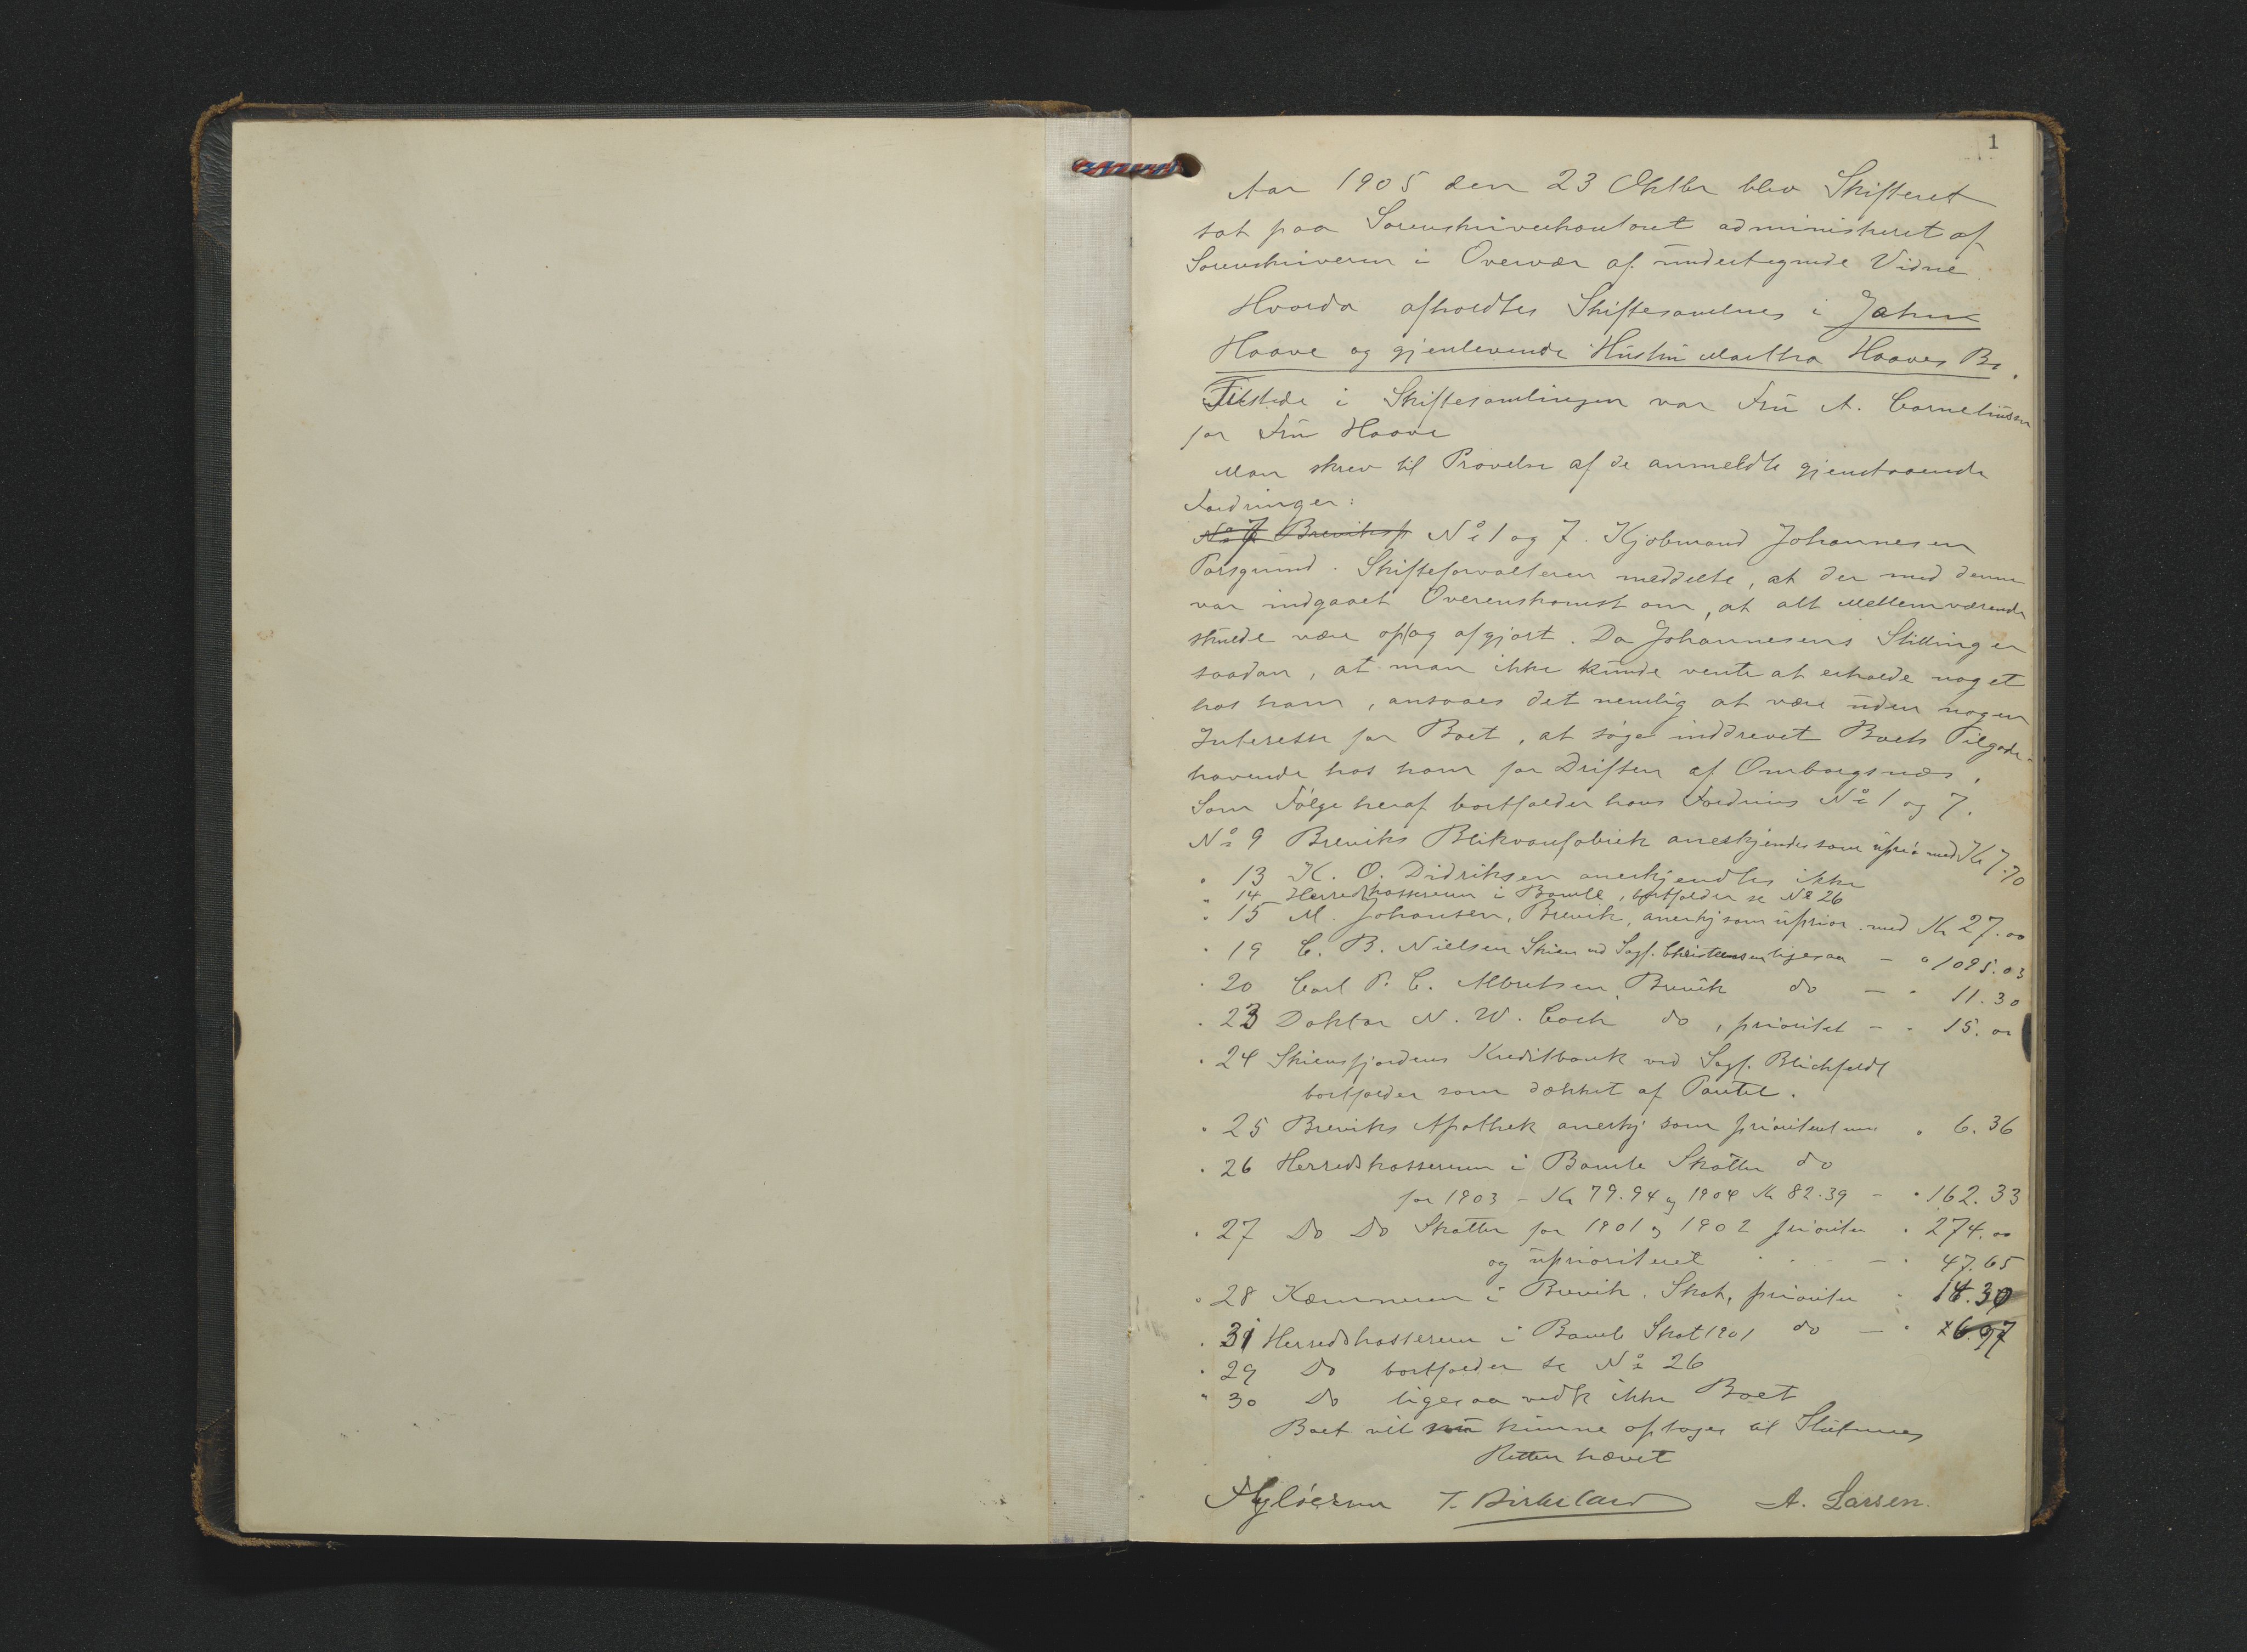 1
Aar 1905 den 23 Oktbr blev Skifteret
sat paa Sorenskriverkontoret administreret af
Sorenskriveren i Overvær af undertegnede Vidne.
Hvorda afholdtes Skiftesamlings i Jahn
Haave og gjenlevende Hustru Martha Haaves Bo.
Tilstede i Skiftesamlingen var Fru A. Corneliussen
for Fru Haave
Man skrev til Prøvelse af de anmeldte gjenstaaende
Fordringer:
No 7 Breviks No 1 og 7. Kjøbmand Johannesen
Porsgrund. Skifteforvalteren meddelte, at der med denne
var indgaaet Overenskomst om, at alt Mellemværende
skulde være op og afgjort. Da Johannesens Stilling er
saadan, at man ikke kunde vente at erholde noget
hos ham, ansaaes det nemlig at være uden nogen
Interesse for Boet, at søge inddrevet Boets Tilgode-
havende hos ham for Driften af Omborgsnæs.
Som Følge heraf bortfalder hans Fordrings No 1 og 7.
No 9 Breviks Blikvarefabrik anerkjendes som uprio med Kr 7.70
" 13 K. O. Didriksen anerkjendtes ikke
" 14 Herredskasseren i Bamle, bortfalder se No 26
" 15 M. Johansen, Brevik, anerkj som uprior. med Kr 27.00
" 19 C. B. Nielsen Skien ved Sagf. Christensen ligesaa - " 1095.03
" 20 Carl P. C. Albretsen, Brevik do - " 11.30
" 23 Doktor N. W. Coch do, prioritet - " 15.00
" 24 Skiensfjordens Kreditbank ved Sagf. Blichfeldt
bortfalder som dækket af Pantet.
" 25 Breviks Apothek anerkj som prioritert med " 6.36
" 26 Herredskasseren i Bamle Skatter do
for 1903 - Kr 79.94 og 1904 Kr 82.39 - " 162.33
" 27 Do Do Skatter for 1901 og 1902 prioriter " 274.00
og uprioriteret - " 47.65
" 28 Kæmneren i Brevik. Skat, prioriter " 18.30
" 31 Herredskasseren i Bamle Skat 1901 do - " 6.97
" 29 Do bortfalder se No 26
" 30 Do ligesaa vedk ikke Boet
Boet vil nu kunne optages til Slutning
Retten hævet
T. Birkeland A. Larsen.